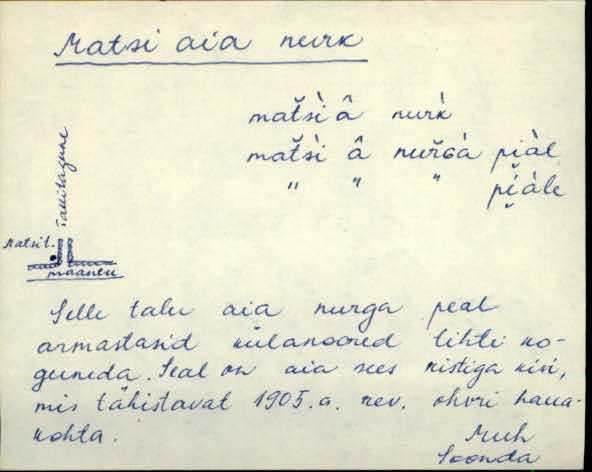 Matsi aia nurk
mat̆s̀i â nur̀k
mat̆s̀i â nur̆ɢà pi̮àl
" " " pi̮àle
Tallitagune
Matsi t.
maantee
Selle talu aia nurga peal
armastasid külanoored tihti ko-
guneda. Seal on aia sees ristiga kivi,
mis tähistavat 1905. a. rev. ohvri haua-
kohta.
Muh
Soonda